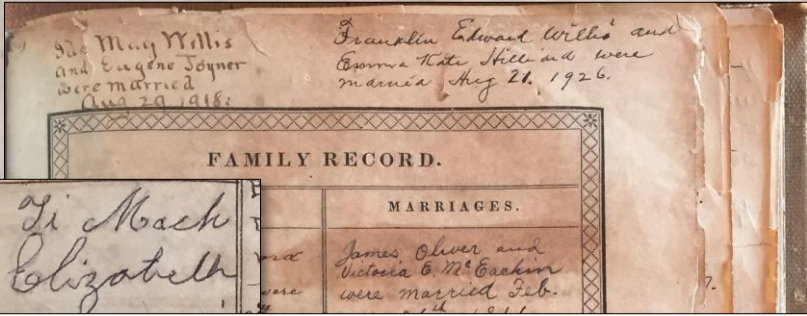 Ida May Willis
and Eugene Joyner
were married
Aug 29, 1918.
Franklin Edward Willis and
Emma Kate Hilliard were
married Aug 21. 1926.
FAMILY RECORD.
MARRIAGES.
James, Oliver and
Victoria E. McEachin
were married Feb.
Ti Mach
Elizabeth
were